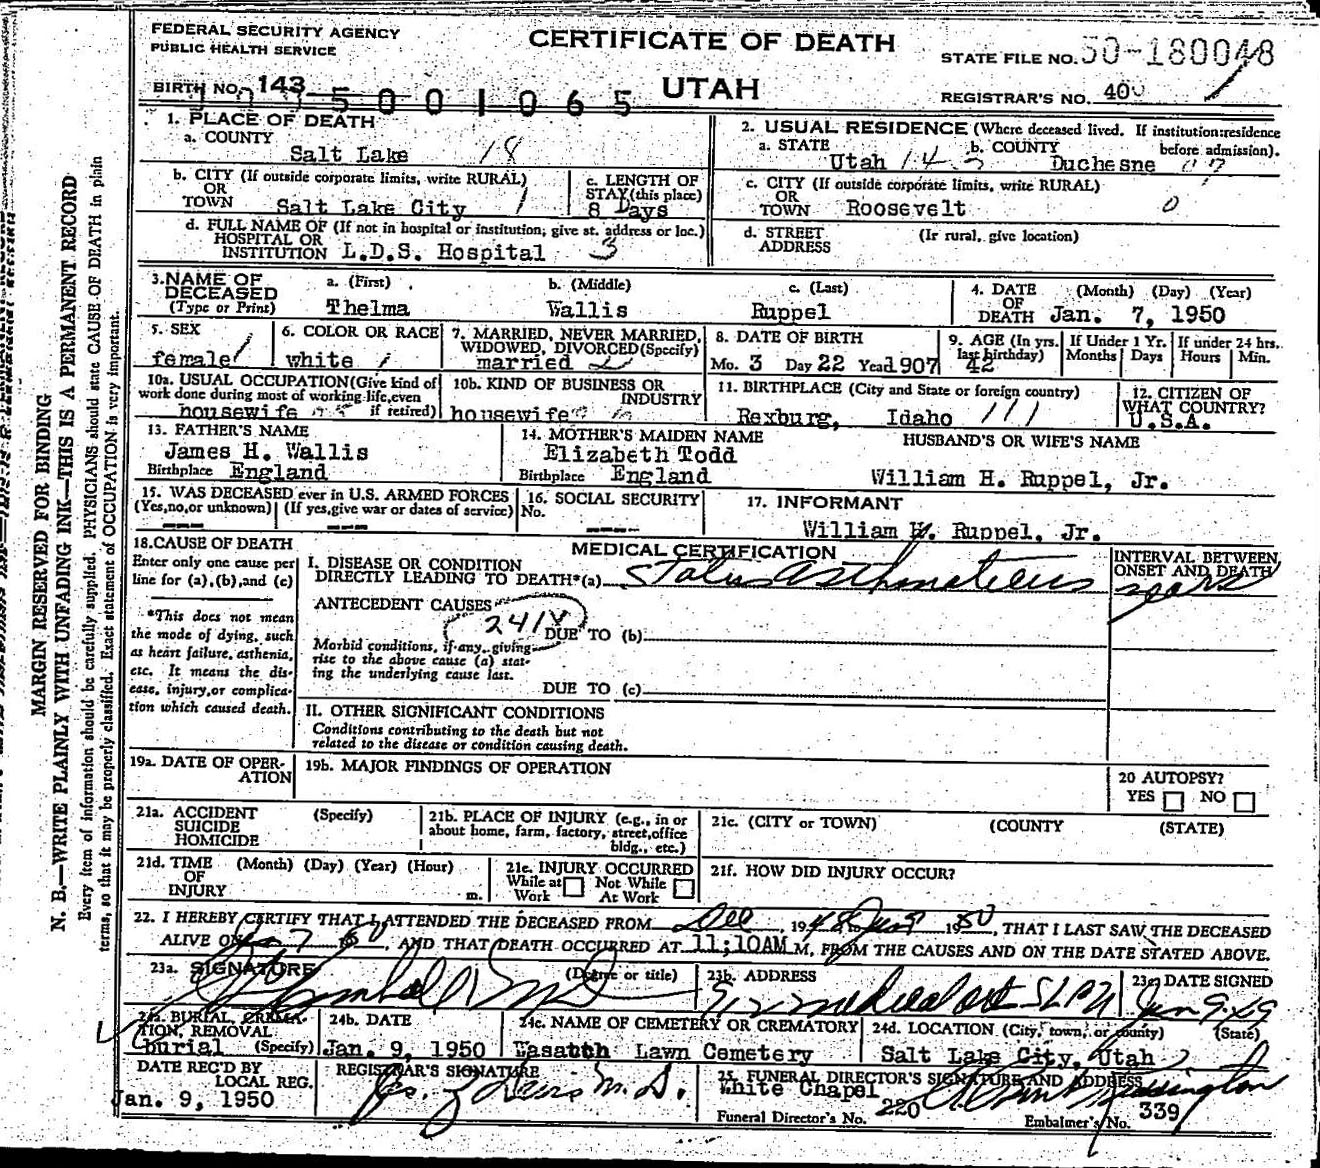 FEDERAL SECURITY AGENCY
PUBLIC HEALTH SERVICE
CERTIFICATE OF DEATH
UTAH
STATE FILE NO. 50-180048
REGISTRAR'S NO. 40
BIRTH NO. 143
5 0 0 1 0 6 5
MARGIN RESERVED FOR BINDING
N. B.—WRITE PLAINLY WITH UNFADING INK—THIS IS A PERMANENT RECORD
Every item of information should be carefully supplied. PHYSICIANS should state CAUSE OF DEATH in plain
terms, so that it may be properly classified. Exact statement of OCCUPATION is very important.
1. PLACE OF DEATH
a. COUNTY
Salt Lake 18
b. CITY (If outside corporate limits, write RURAL)
OR
TOWN Salt Lake City 1
c. LENGTH OF
STAY (this place)
8 Days
d. FULL NAME OF (If not in hospital or institution, give st. address or loc.)
HOSPITAL OR
INSTITUTION L.D.S. Hospital 3
2. USUAL RESIDENCE (Where deceased lived. If institution: residence
before admission).
a. STATE Utah 14
b. COUNTY Duchesne
c. CITY (If outside corporate limits, write RURAL)
OR
TOWN Roosevelt 0
d. STREET (If rural, give location)
ADDRESS
3. NAME OF
DECEASED
(Type or Print)
a. (First) b. (Middle) c. (Last)
Thelma Wallis Ruppel
4. DATE (Month) (Day) (Year)
OF
DEATH Jan. 7, 1950
5. SEX
female 1
6. COLOR OR RACE
white 1
7. MARRIED, NEVER MARRIED,
WIDOWED, DIVORCED (Specify)
married 2
8. DATE OF BIRTH
Mo. 3 Day 22 Year 1907
9. AGE (In yrs.
last birthday)
42
If Under 1 Yr.
Months Days
If under 24 hrs.
Hours Min.
10a. USUAL OCCUPATION (Give kind of
work done during most of working life, even
if retired)
housewife
10b. KIND OF BUSINESS OR
INDUSTRY
housewife
11. BIRTHPLACE (City and State or foreign country)
Rexburg, Idaho 111
12. CITIZEN OF
WHAT COUNTRY?
U.S.A.
13. FATHER'S NAME
James H. Wallis
Birthplace England
14. MOTHER'S MAIDEN NAME
Elizabeth Todd
Birthplace England
HUSBAND'S OR WIFE'S NAME
William H. Ruppel, Jr.
15. WAS DECEASED ever in U.S. ARMED FORCES
(Yes, no, or unknown) (If yes, give war or dates of service)
--- ---
16. SOCIAL SECURITY
No.
----
17. INFORMANT
William H. Ruppel, Jr.
18. CAUSE OF DEATH
Enter only one cause per
line for (a), (b), and (c)
*This does not mean
the mode of dying, such
as heart failure, asthenia,
etc. It means the dis-
ease, injury, or complica-
tion which caused death.
MEDICAL CERTIFICATION
I. DISEASE OR CONDITION
DIRECTLY LEADING TO DEATH* (a) Status Asthmaticus
ANTECEDENT CAUSES
241X
DUE TO (b)
Morbid conditions, if any, giving
rise to the above cause (a) stat-
ing the underlying cause last.
DUE TO (c)
II. OTHER SIGNIFICANT CONDITIONS
Conditions contributing to the death but not
related to the disease or condition causing death.
INTERVAL BETWEEN
ONSET AND DEATH
years
19a. DATE OF OPER-
ATION
19b. MAJOR FINDINGS OF OPERATION
20 AUTOPSY?
YES NO
21a. ACCIDENT (Specify)
SUICIDE
HOMICIDE
21b. PLACE OF INJURY (e.g., in or
about home, farm, factory, street, office
bldg., etc.)
21c. (CITY or TOWN) (COUNTY (STATE)
21d. TIME (Month) (Day) (Year) (Hour)
OF
INJURY m.
21e. INJURY OCCURRED
While at Not While
Work At Work
21f. HOW DID INJURY OCCUR?
22. I HEREBY CERTIFY THAT I ATTENDED THE DECEASED FROM Dec, 1948 TO Jan 7 1950, THAT I LAST SAW THE DECEASED
ALIVE ON Jan 7 50, AND THAT DEATH OCCURRED AT 11;10AM M, FROM THE CAUSES AND ON THE DATE STATED ABOVE.
23a. SIGNATURE (Degree or title)
MD
23b. ADDRESS
Medical Arts SLC U
23c. DATE SIGNED
Jan 9-49
24a. BURIAL, CREMA-
TION, REMOVAL
(Specify)
burial
24b. DATE
Jan. 9, 1950
24c. NAME OF CEMETERY OR CREMATORY
Wasatch Lawn Cemetery
24d. LOCATION (City, town, or county) (State)
Salt Lake City, Utah
DATE REC'D BY
LOCAL REG.
Jan. 9, 1950
REGISTRAR'S SIGNATURE
M.D.
25. FUNERAL DIRECTOR'S SIGNATURE AND ADDRESS
White Chapel
Funeral Director's No. 220
Embalmer's No. 339